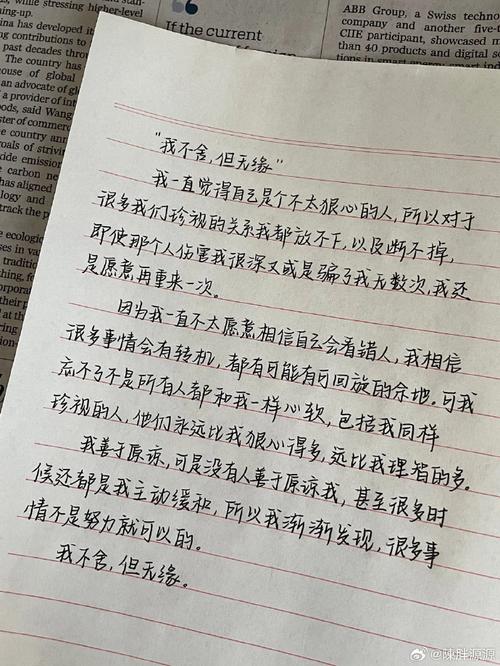 stress, while stressing higher-level
ning-up.
ina has developed it
ng contributions to
past decades throu
The country has
ouse of global
an advocate of gl
a provider of int
oods, said Wang
ster of commerce
he country and
oals of striving
dde emission
e carbon ne
as aligned
logy and
track the p
e ecologi
tradition
“If the current
ABB Group, a Swiss technol
company and another five-t
CIIE participant, showcased m
than 40 products and digital s
“我不舍，但无缘”
我一直觉得自己是个不太狠心的人，所以对于
很多我们珍视的关系我都放不下，以及断不掉，
即使那个人伤害我很深又或是骗了我无数次，我还
是愿意再重来一次。
因为我一直不太愿意相信自己会看错人，我相信
很多事情会有转机，都有可能有可回旋的余地。可我
忘不了不是所有人都和我一样心软，包括我同样
珍视的人，他们永远比我狠心得多，远比我理智的多。
我善于原谅，可是没有人善于原谅我，甚至很多时
候还都是我主动缓和，所以我渐渐发现，很多事
情不是努力就可以的。
我不舍，但无缘。
@陳胖源源